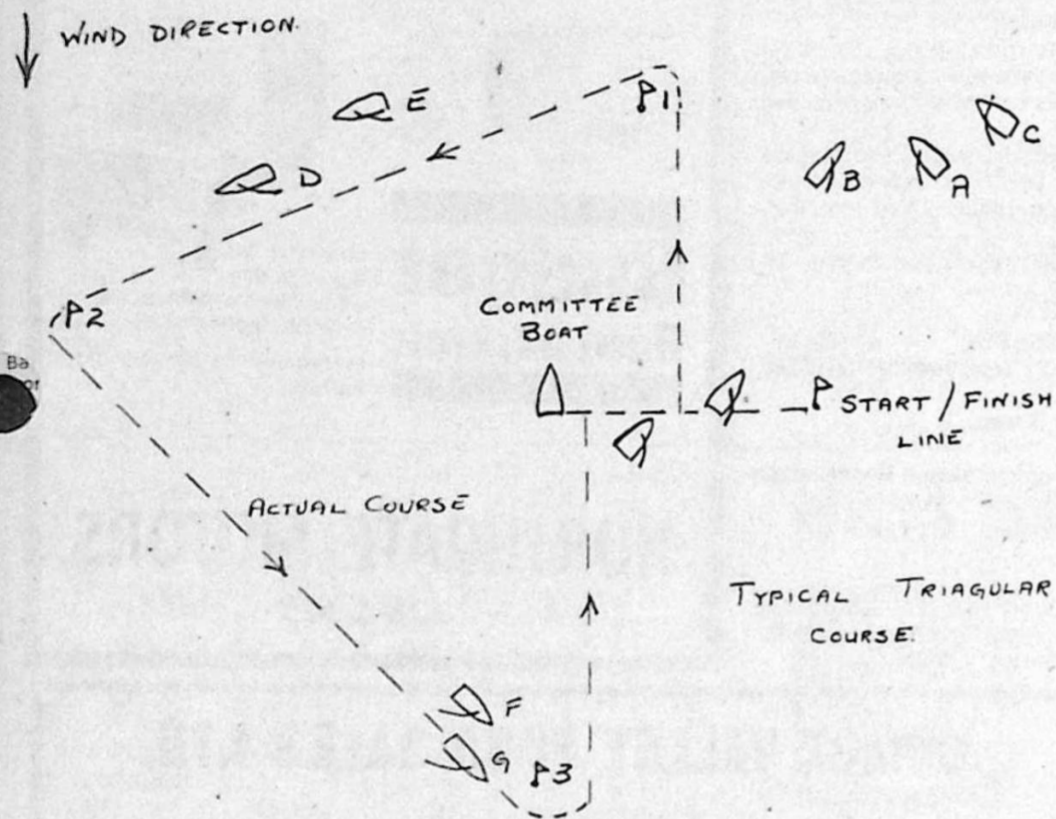 WIND DIRECTION.
E
P1
C
D
B
A
COMMITTEE
BOAT
P2
Ba
or
START / FINISH
LINE
ACTUAL COURSE
TYPICAL TRIAGULAR
COURSE.
F
G
P3